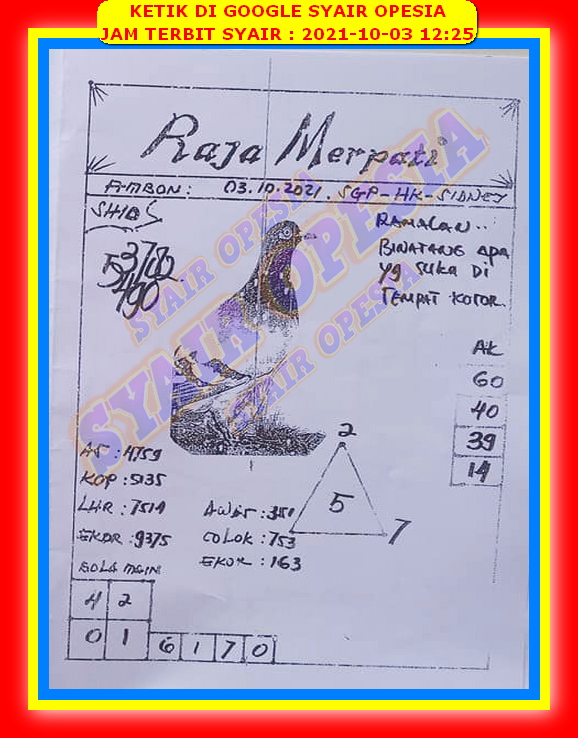 KETIK DI GOOGLE SYAIR OPESIA
JAM TERBIT SYAIR : 2021-10-03 12:25
Raja Merpati
AMBON: 03.10.2021. SGP-HK-SIDNEY
SHIO'S
RAMALAN..
BINATANG APA
Yg SUKA DI
TEMPAT KOTOR.
SYAIR OPESIA
SYAIR OPESIA
SYAIR OPESIA
AK
60
40
39
14
AS : 4759
KOP : 5135
LHR : 7514
EKOR : 9375
AWAS : 351
COLOK : 753
EKOR : 163
2
5
7
BOLA MAIN
4 2
0 1 6 1 7 0